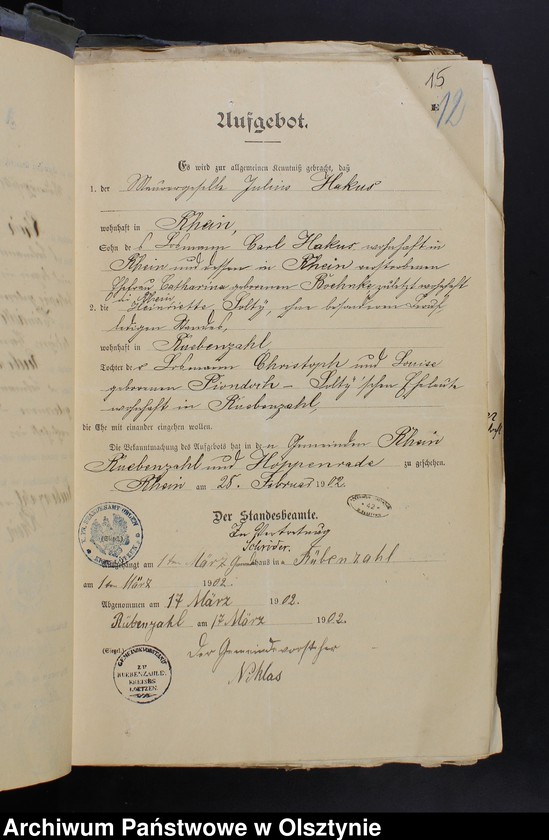 15
E
12
Aufgebot.
Es wird zur allgemeinen Kenntniß gebracht, daß
1. der Maurergeselle Julius Hakus
wohnhaft in Rhein,
Sohn des Losmann Carl Hakus wohnhaft in
Rhein und dessen in Rhein verstorbenen
Ehefrau Catharina geborenen Boehnke zuletzt wohnhaft
in Rhein,
2. die Heinriette Solty, ohne besonderen Beruf
ledigen Standes,
wohnhaft in Ruebenzahl,
Tochter des Losmann Christoph und Louise
geborenen Piondoch - Solty'schen Eheleute
wohnhaft in Ruebenzahl,
die Ehe mit einander eingehen wollen.
Die Bekanntmachung des Aufgebots hat in den Gemeinden Rhein
Ruebenzahl und Hoppenrade zu geschehen.
Rhein am 25. Februar 1902.
Der Standesbeamte.
In Vertretung
Schröder.
Ausgehangt am 1ten März Gemeindehaus in Rübenzahl
am 1ten März 1902.
Abgenommen am 17 März 1902.
Rübenzahl am 17. März 1902.
(Siegel.) Der Gemeindevorsteher
Nihlas
GEMEINDEVORSTAND
ZU
RUEBENZAHL
KREISES
LOETZEN
Archiwum Państwowe w Olsztynie